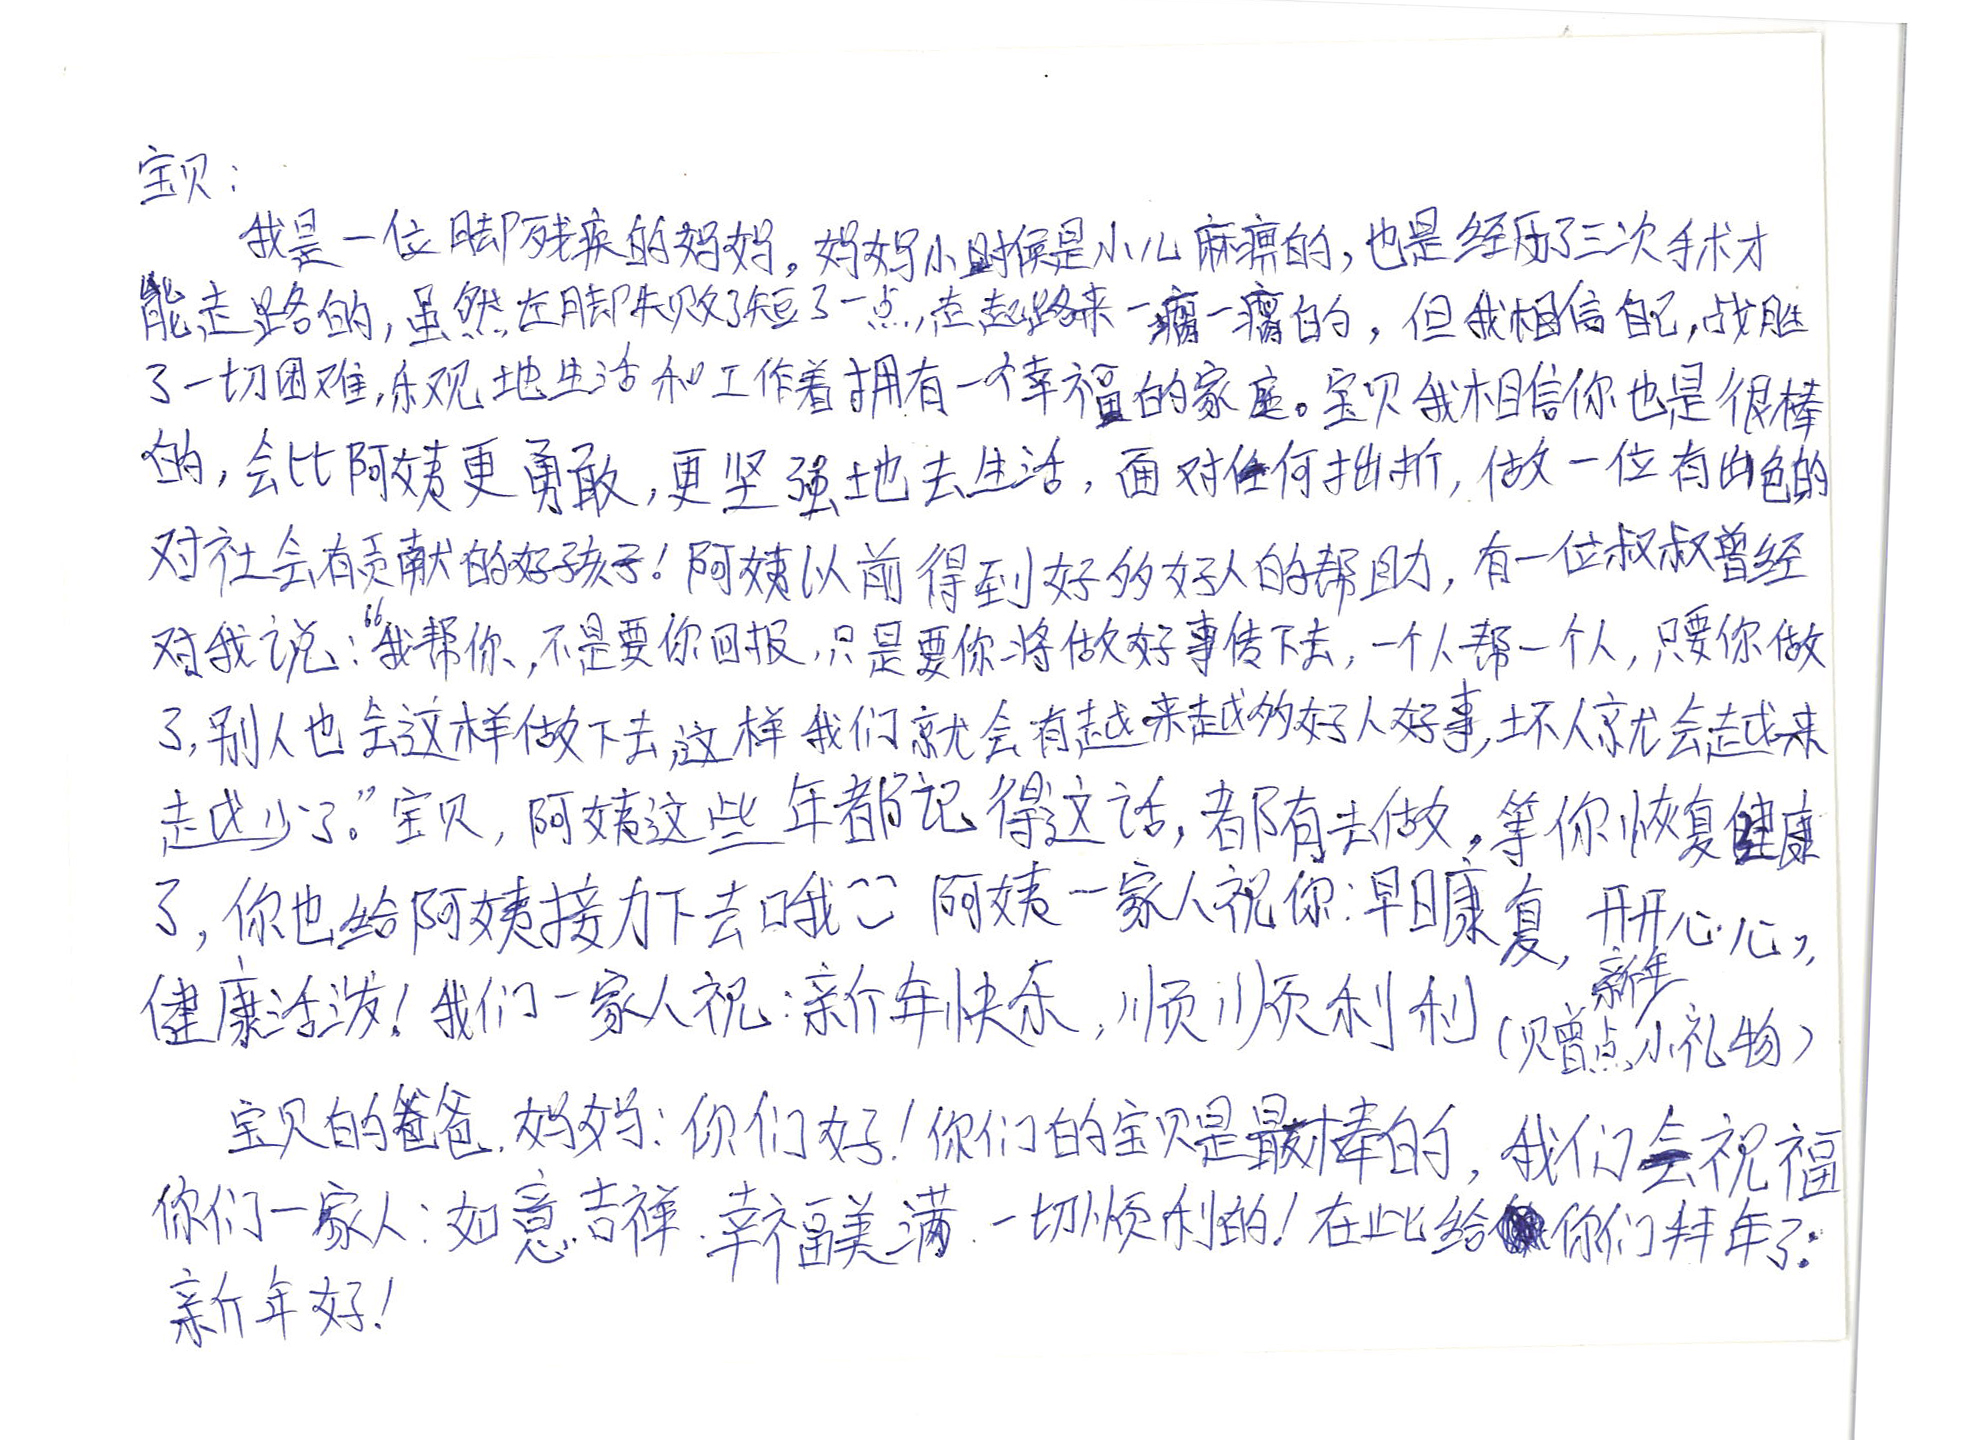 宝贝：
我是一位脚残疾的妈妈。妈妈小时候是小儿麻痹的，也是经历了三次手术才
能走路的，虽然左脚失败了短了一点，走起路来一瘸一瘸的，但我相信自己，战胜
了一切困难，乐观地生活和工作着拥有一个幸福的家庭。宝贝我相信你也是很棒
的，会比阿姨更勇敢，更坚强地去生活，面对任何拙折，做一位有出色的
对社会有贡献的好孩子！阿姨以前得到好多好人的帮助，有一位叔叔曾经
对我说：“我帮你，不是要你回报，只是要你将做好事传下去，一个人帮一个人，只要你做
了，别人也会这样做下去，这样我们就会有越来越多好人好事，坏人就会越来
越少了。”宝贝，阿姨这些年都记得这话，都有去做。等你恢复健康
了，你也给阿姨接力下去哦 阿姨一家人祝你：早日康复，开开心心，
健康活泼！我们一家人祝：新年快乐，顺顺利利（赠点新年小礼物）
宝贝的爸爸、妈妈：你们好！你们的宝贝是最棒的，我们会祝福
你们一家人：如意吉祥、幸福美满、一切顺利的！在此给你们拜年了：
新年好！